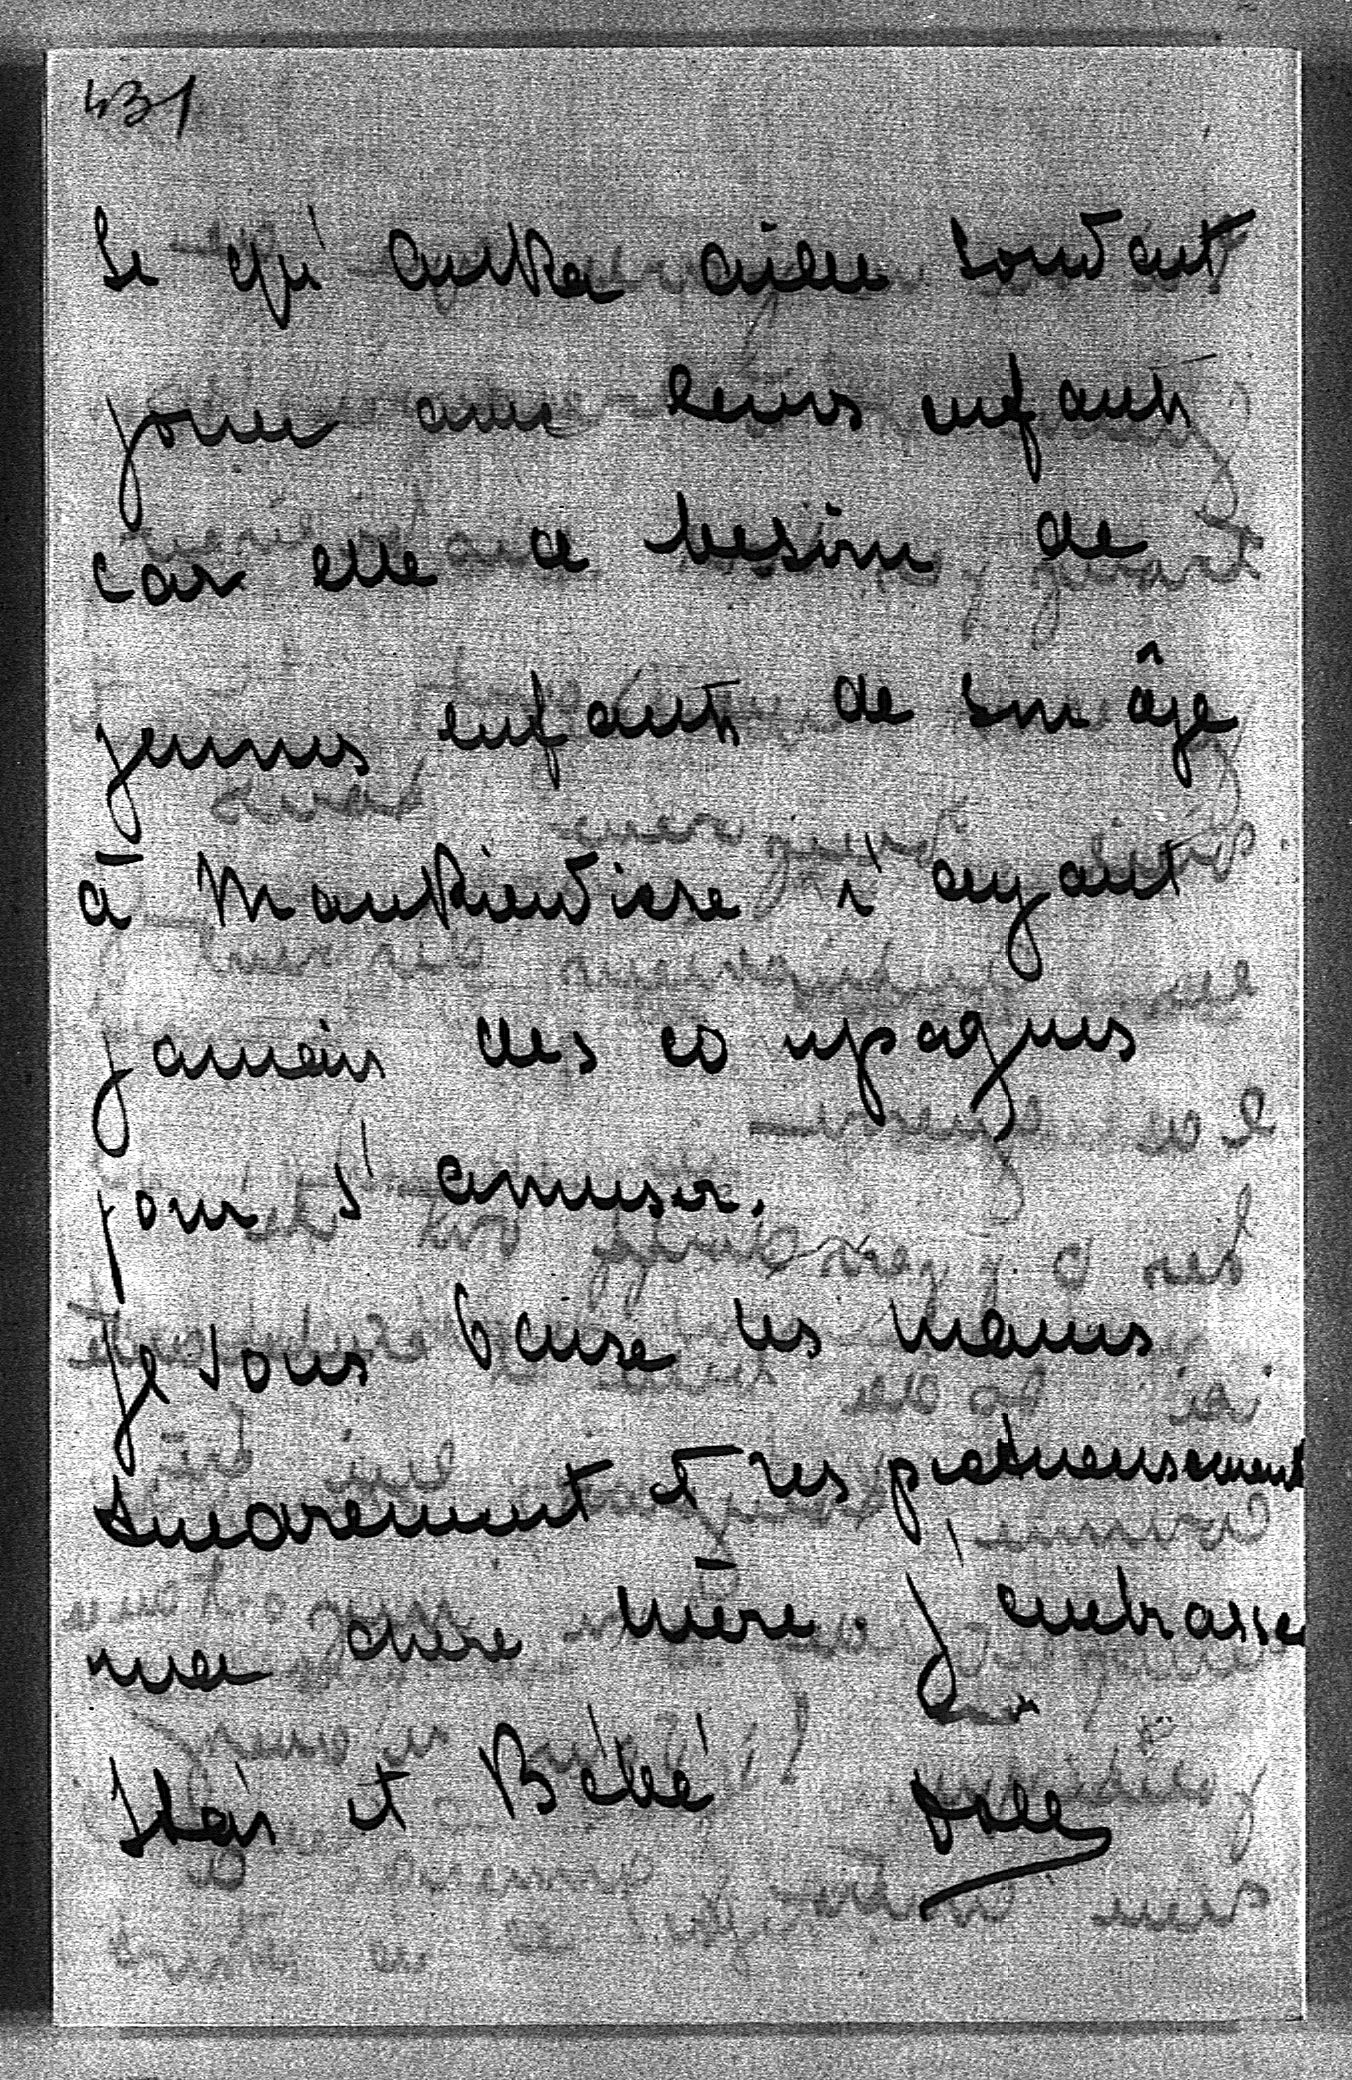 431
Je qu' Anka aille souvent
jouer avec leurs enfants
car elle a besoin de
jeunes enfants de son âge
à Mankiewicze n'ayant
jamais des compagnes
pour s'amuser.
Je vous baise les mains
sincèrement et respectueusement
ma chère mère. J'embrasse
Stás et Bébé